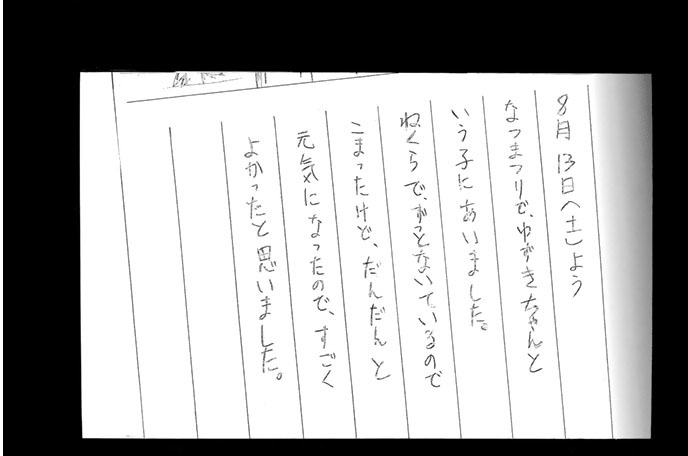 8月13日(土)よう
なつまつりで、ゆずきちゃんと
いう子にあいました。
ねくらで、ずっとないているので
こまったけど、だんだんと
元気になったので、すごく
よかったと思いました。